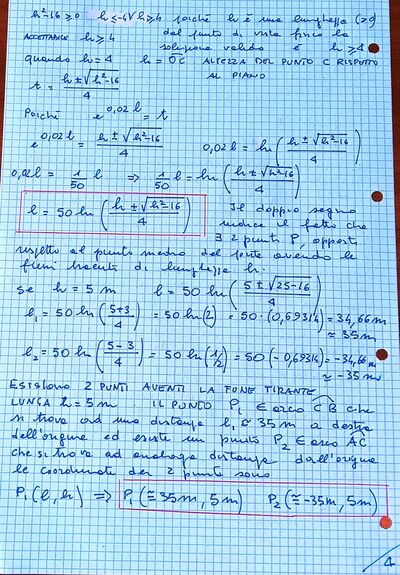 h²-16 ≥ 0 h ≤ -4 V h ≥ 4 poiché h è una lunghezza (>0)
ACCETTABILE h ≥ 4 dal punto di vista fisico la
soluzione valida è h ≥ 4
quando h = 4 h = OC ALTEZZA DEL PUNTO C RISPETTO
AL PIANO
t = (h ± √(h²-16))/4
Poiché e^(0,02l) = t
e^(0,02l) = (h ± √(h²-16))/4 0,02l = ln((h ± √(h²-16))/4)
0,02l = 1/50 l ⇒ 1/50 l = ln((h ± √(h²-16))/4)
l = 50 ln((h ± √(h²-16))/4) Il doppio segno
indica il fatto che
∃ 2 punti P, opposti
rispetto al punto medio del ponte avendo le
funi tracenti di lunghezza h.
se h = 5 m l = 50 ln((5 ± √(25-16))/4)
l₁ = 50 ln((5+3)/4) = 50 ln(2) = 50·(0,69314) = 34,66 m
≅ 35 m
l₂ = 50 ln((5-3)/4) = 50 ln(1/2) = 50(-0,69314) = -34,66 m
≅ -35 m
ESISTONO 2 PUNTI AVENTI LA FUNE TIRANTE
LUNGA h = 5 m IL PUNTO P₁ ∈ arco CB che
si trova ad una distanza l₁ ≅ 35 m a destra
dell'origine ed esiste un punto P₂ ∈ arco AC
che si trova ad analoga distanza dall'origine
le coordinate dei 2 punti sono
P₁(l, h) ⇒ P₁(≅35m, 5m) P₂(≅-35m, 5m)
4